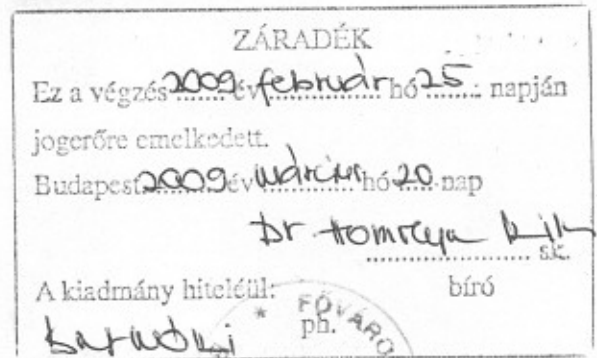 ZÁRADÉK
Ez a végzés 2009 év február hó 25. napján
jogerőre emelkedett.
Budapest 2009 év március hó 20. nap
Dr
s.k.
A kiadmány hiteléül: bíró
FŐVÁRO
ph.